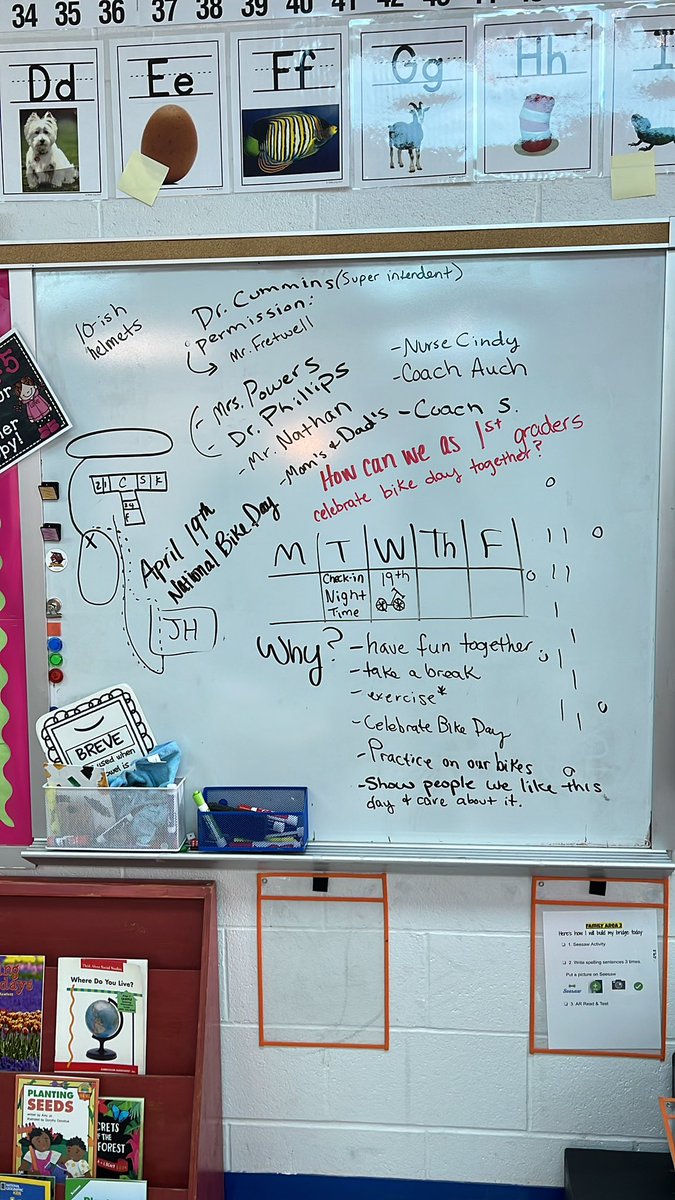 34 35 36 37 38 39 40 41 42
Dd
Ee
Ff
Gg
Hh
10-ish
helmets
Dr. Cummins (Super intendent)
Permission:
Mr. Fretwell
- Mrs. Powers
- Dr. Phillips
- Mr. Nathan
- Mom's & Dad's
- Nurse Cindy
- Coach Auch
- Coach S.
How can we as 1st graders
celebrate bike day together?
C S K
X
JH
April 19th
National Bike Day
M T W Th F
Check-in
Night
Time
19th
Why?
- have fun together
- take a break
- exercise*
- Celebrate Bike Day
- Practice on our bikes
- Show people we like this
day & care about it.
BREVE
used when
FAMILY AREA 3
Here's how I will build my bridge today
1. Seesaw Activity
2. Write spelling sentences 3 times.
Put a picture on Seesaw
Seesaw
3. AR Read & Test
Where Do You Live?
PLANTING
SEEDS